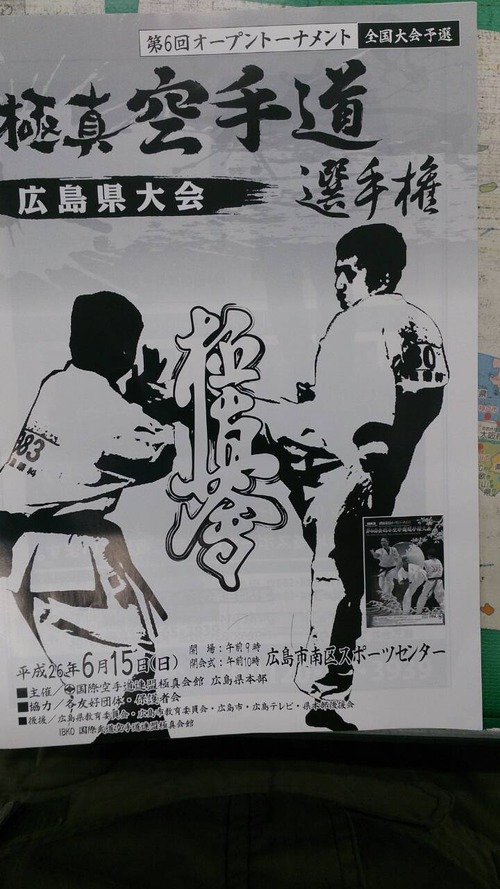 第6回オープントーナメント 全国大会予選
極真空手道
選手権
広島県大会
極真会
平成26年6月15日(日)
開 場:午前9時
開会式:午前10時
広島市南区スポーツセンター
■主催/国際空手道連盟極真会館 広島県本部
■協力/各友好団体・保護者会
■後援/広島県教育委員会・広島市教育委員会・広島市・広島テレビ・県本部後援会
IBKO 国際武道空手道連盟極真会館